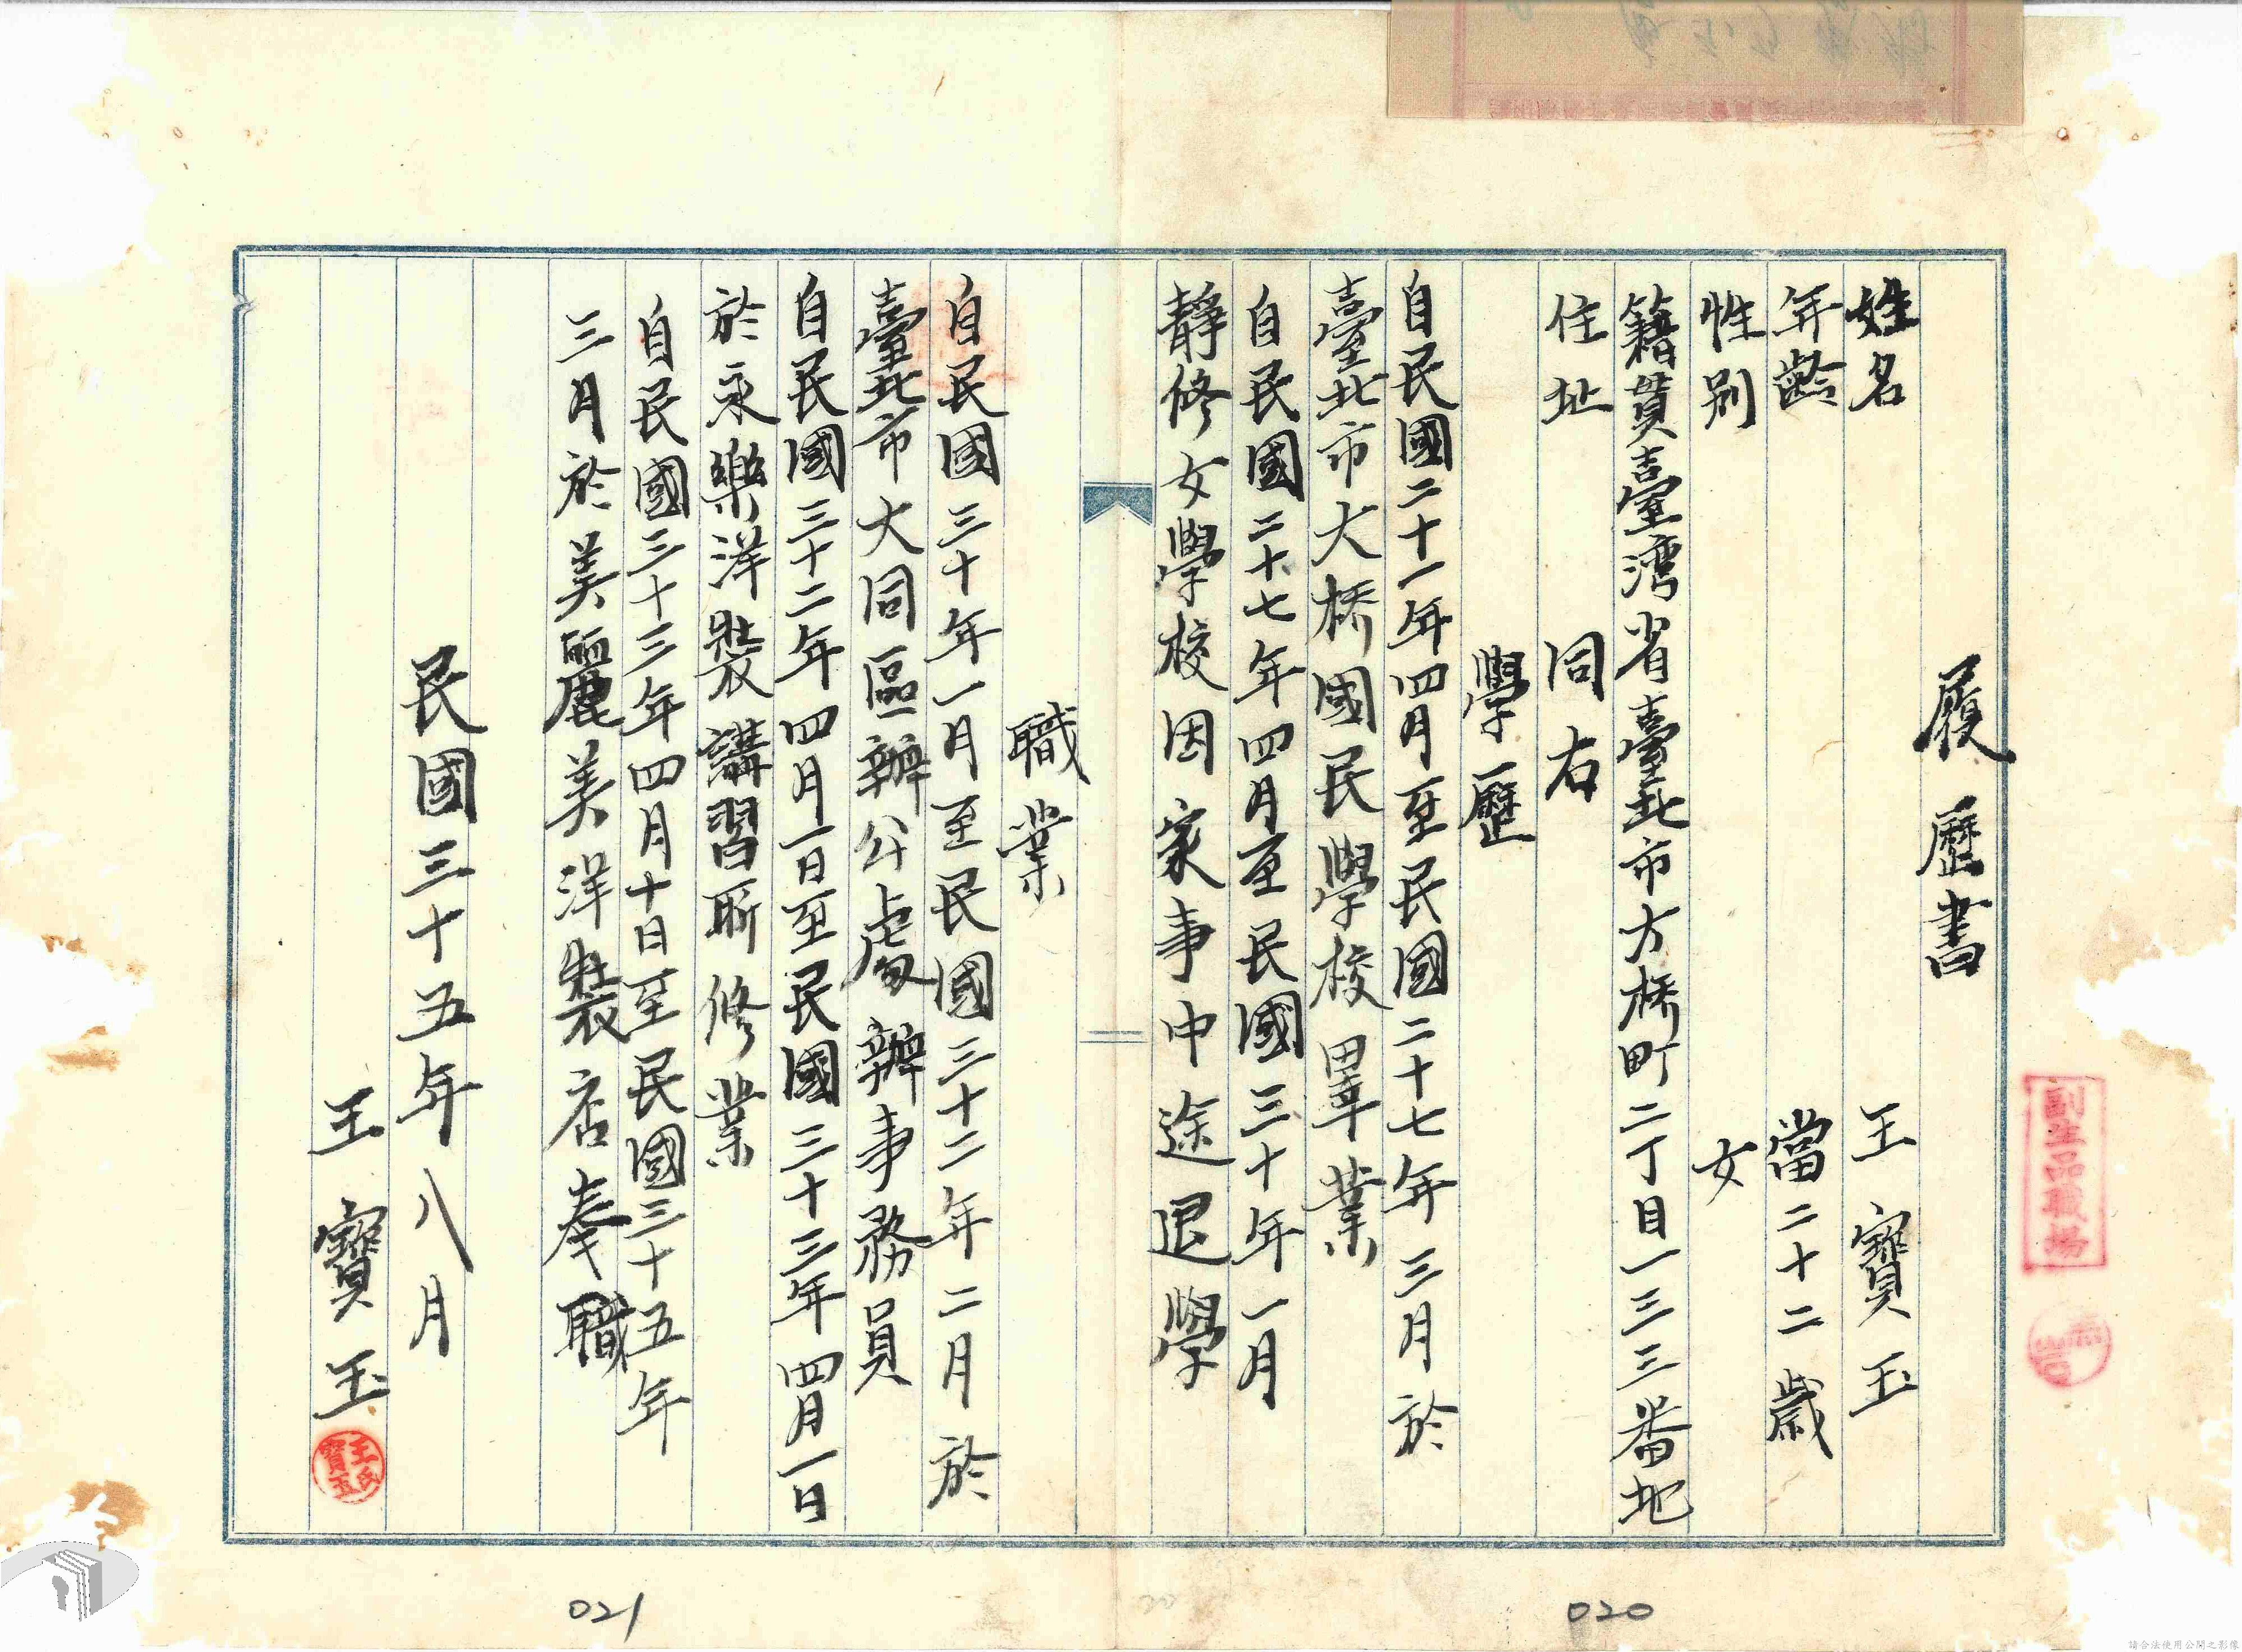 履歷書
姓名 王寶玉
年齡 當二十二歲
性別 女
籍貫臺湾省臺北市大橋町二丁目一三三番地
住址 同右
學歷
自民國二十一年四月至民國二十七年三月於
臺北市大橋國民學校畢業
自民國二十七年四月至民國三十年一月
靜修女學校因家事中途退學
職業
自民國三十年一月至民國三十二年二月於
臺北市大同區辦公處辦事務員
自民國三十二年四月一日至民國三十三年四月一日
於永樂洋裝講習所修業
自民國三十三年四月十日至民國三十五年
三月於美麗美洋裝店奉職
民國三十五年八月
王寶玉
020
021
請合法使用公開之影像